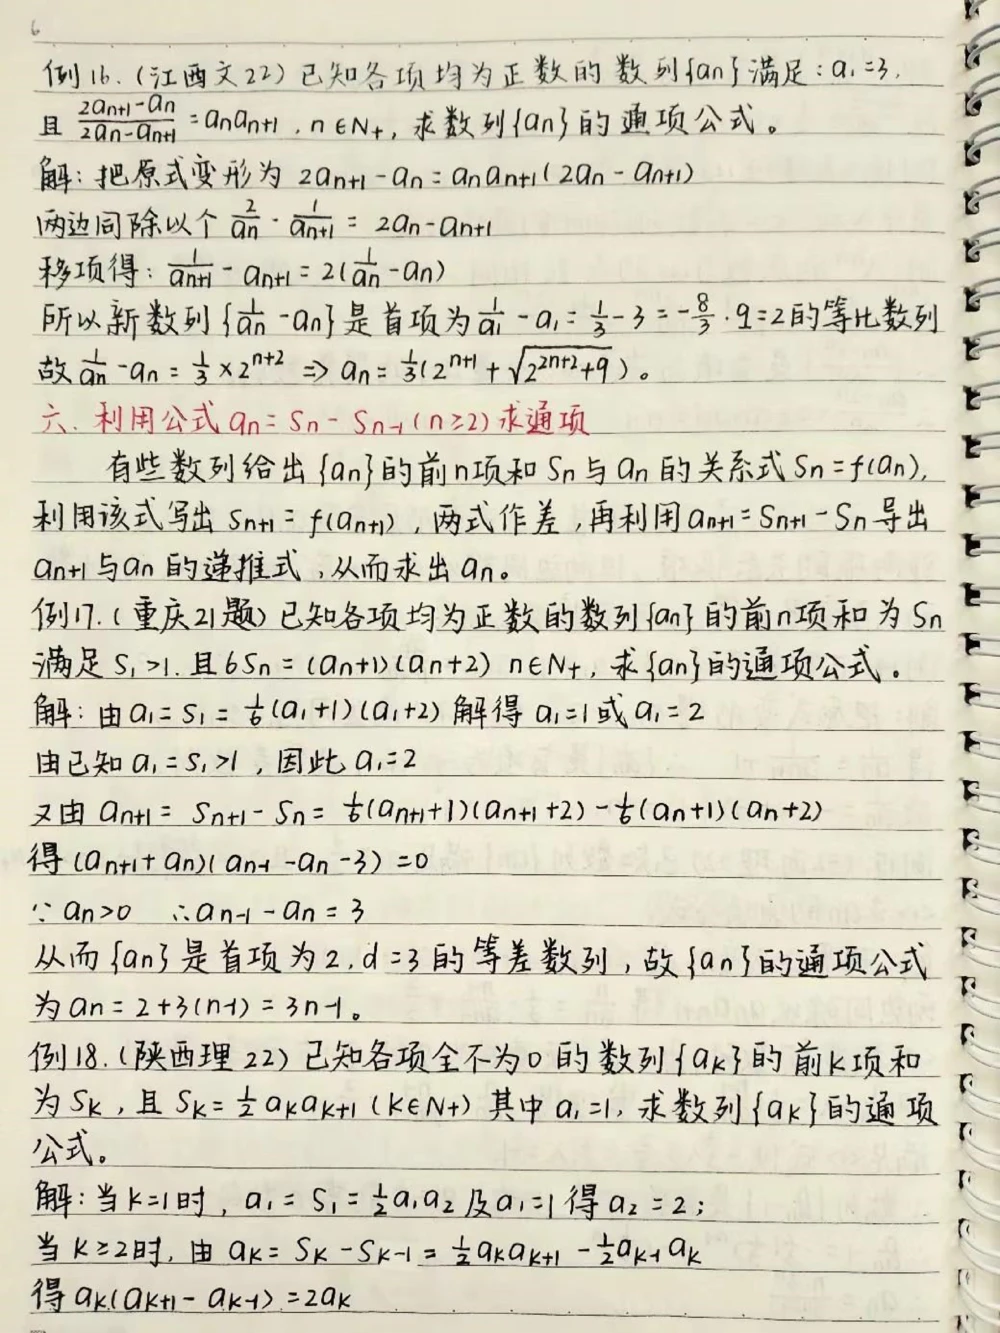 6
例16.(江西文22)已知各项均为正数的数列{an}满足:a₁=3,
且 (2an+1-an)/(2an-an+1) = anan+1 , n∈N+, 求数列{an}的通项公式。
解:把原式变形为 2an+1-an=anan+1(2an-an+1)
两边同除以个 2/an - 1/an+1 = 2an-an+1
移项得: 1/an+1 - an+1=2(1/an -an)
所以新数列{1/an -an}是首项为1/a₁ -a₁= 1/3 -3=-8/3 . q=2的等比数列
故1/an -an = 1/3×2ⁿ⁺² ⇒ an= 1/3(2ⁿ⁺¹+√(2²ⁿ⁺²+9))。
六. 利用公式 an=Sn-Sn-1(n≥2)求通项
有些数列给出{an}的前n项和Sn与an的关系式Sn=f(an),
利用该式写出 Sn+1=f(an+1), 两式作差,再利用an+1=Sn+1-Sn导出
an+1与an的递推式,从而求出an。
例17.(重庆21题)已知各项均为正数的数列{an}的前n项和为Sn
满足S₁>1.且6Sn=(an+1)(an+2) n∈N+, 求{an}的通项公式。
解:由a₁=S₁=1/6(a₁+1)(a₁+2)解得a₁=1或a₁=2
由已知a₁=S₁>1,因此a₁=2
又由 an+1= Sn+1-Sn= 1/6(an+1+1)(an+1+2)-1/6(an+1)(an+2)
得(an+1+an)(an-1-an-3)=0
∵an>0 ∴an-1-an=3
从而{an}是首项为2.d=3的等差数列,故{an}的通项公式
为an=2+3(n-1)=3n-1。
例18.(陕西理22)已知各项全不为0的数列{ak}的前k项和
为Sk,且Sk=1/2akak+1(k∈N+)其中a₁=1,求数列{ak}的通项
公式。
解:当k=1时, a₁=S₁=1/2a₁a₂及a₁=1得a₂=2;
当k≥2时,由ak=Sk-Sk-1=1/2akak+1-1/2ak-1ak
得ak(ak+1-ak-1)=2ak